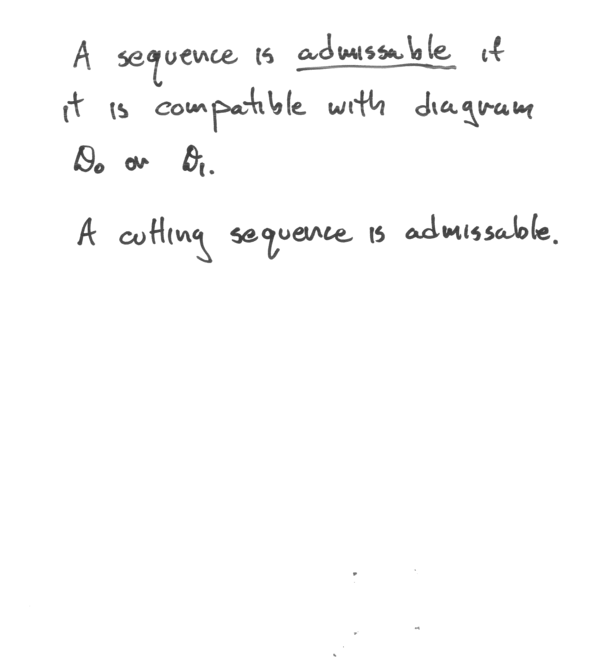 A sequence is admissable if
it is compatible with diagram
D₀ or D₁.
A cutting sequence is admissable.